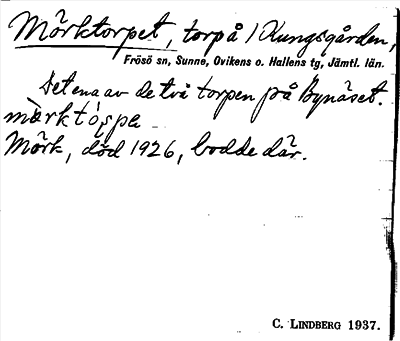 Mörktorpet, torp å 1 Kungsgården,
Frösö sn, Sunne, Ovikens o. Hallens tg, Jämtl. län.
Det ena av de två torpen på Bynäset.
mö̀rktórpa
Mörk, död 1926, bodde där.
C. LINDBERG 1937.